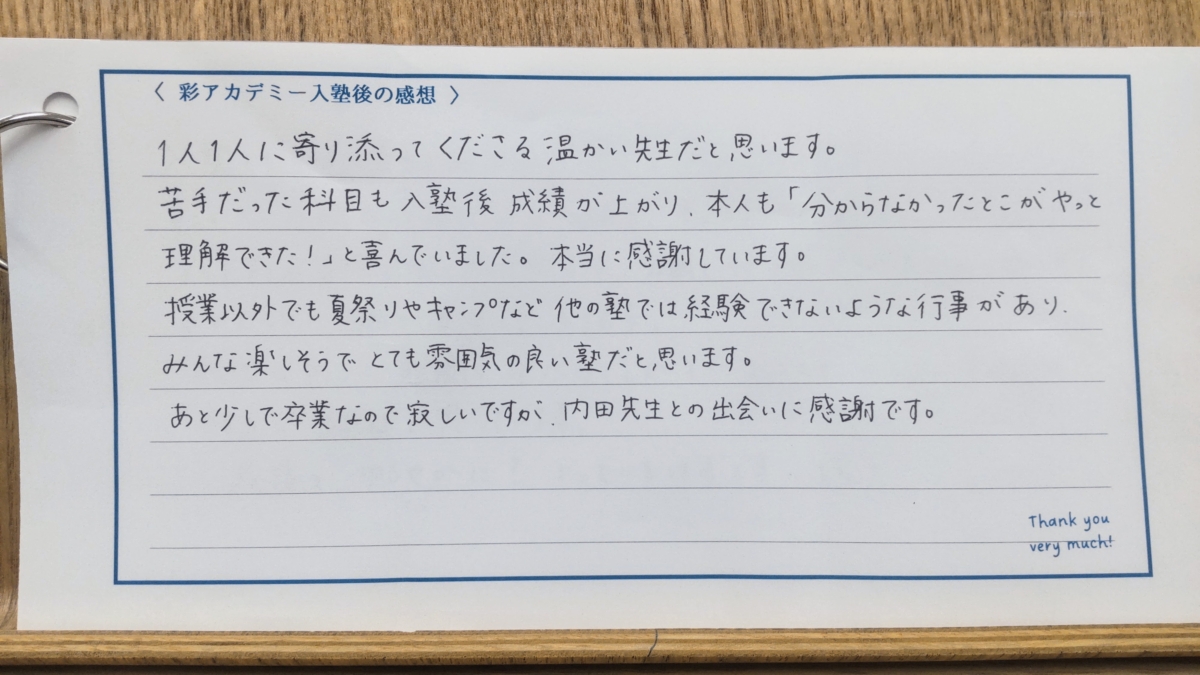 〈 彩アカデミー入塾後の感想 〉
1人1人に寄り添ってくださる温かい先生だと思います。
苦手だった科目も入塾後成績が上がり、本人も「分からなかったとこがやっと
理解できた!」と喜んでいました。本当に感謝しています。
授業以外でも夏祭りやキャンプなど他の塾では経験できないような行事があり、
みんな楽しそうでとても雰囲気の良い塾だと思います。
あと少しで卒業なので寂しいですが、内田先生との出会いに感謝です。
Thank you
very much!